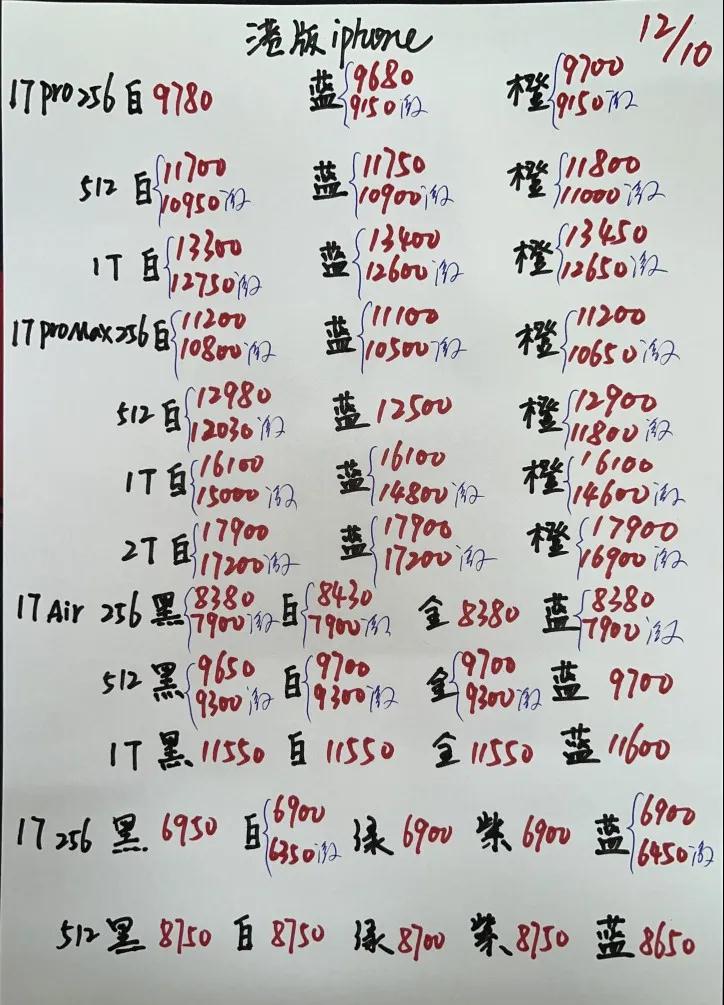 港版iphone 12/10
17pro256 白 9780 蓝{9680 9150激 橙{9700 9150激
512 白{11700 10950激 蓝{11750 10900激 橙{11800 11000激
1T 白{13300 12750激 蓝{13400 12600激 橙{13450 12650激
17proMax256白{11200 10800激 蓝{11100 10500激 橙{11200 10650激
512白{12980 12030激 蓝 12500 橙{12900 11800激
1T 白{16100 15000激 蓝{16100 14800激 橙{16100 14600激
2T 白{17900 17200激 蓝{17900 17200激 橙{17900 16900激
17Air 256 黑{8380 7900激 白{8430 7900激 金 8380 蓝{8380 7900激
512 黑{9650 9300激 白{9700 9300激 金{9700 9300激 蓝 9700
1T 黑 11550 白 11550 金 11550 蓝 11600
17 256 黑 6950 白{6900 6350激 绿 6900 紫 6900 蓝{6900 6450激
512 黑 8750 白 8750 绿 8700 紫 8750 蓝 8650